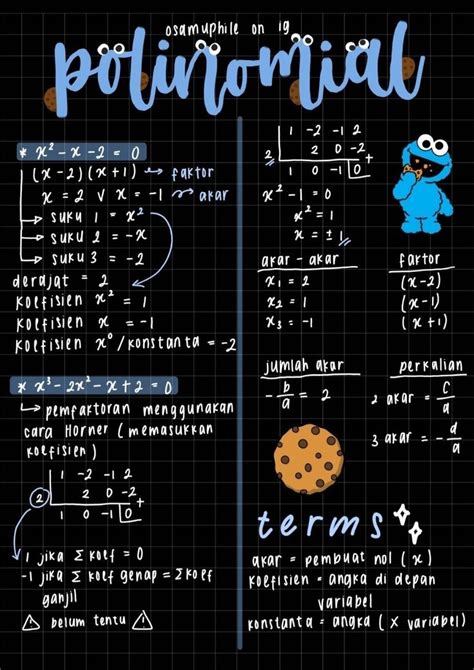 osamuphile on ig
polinomial
* x² - x - 2 = 0
(x - 2)(x + 1) → faktor
x = 2 v x = -1 → akar
→ suku 1 = x²
→ suku 2 = -x
→ suku 3 = -2
derajat = 2
koefisien x² = 1
koefisien x = -1
koefisien x⁰ / konstanta = -2
* x³ - 2x² - x + 2 = 0
↳ pemfaktoran menggunakan
cara Horner (memasukkan
koefisien)
1 -2 -1 2
2 2 0 -2 +
1 0 -1 0
1 jika Σ koef = 0
-1 jika Σ koef genap = Σ koef
ganjil
⚠ belum tentu ⚠
1 -2 -1 2
2 2 0 -2 +
1 0 -1 0
x² - 1 = 0
x² = 1
x = ± 1
akar - akar faktor
x₁ = 2 (x - 2)
x₂ = 1 (x - 1)
x₃ = -1 (x + 1)
jumlah akar perkalian
- b/a = 2 2 akar = c/a
3 akar = - d/a
terms
akar = pembuat nol (x)
koefisien = angka di depan
variabel
konstanta = angka (x variabel)